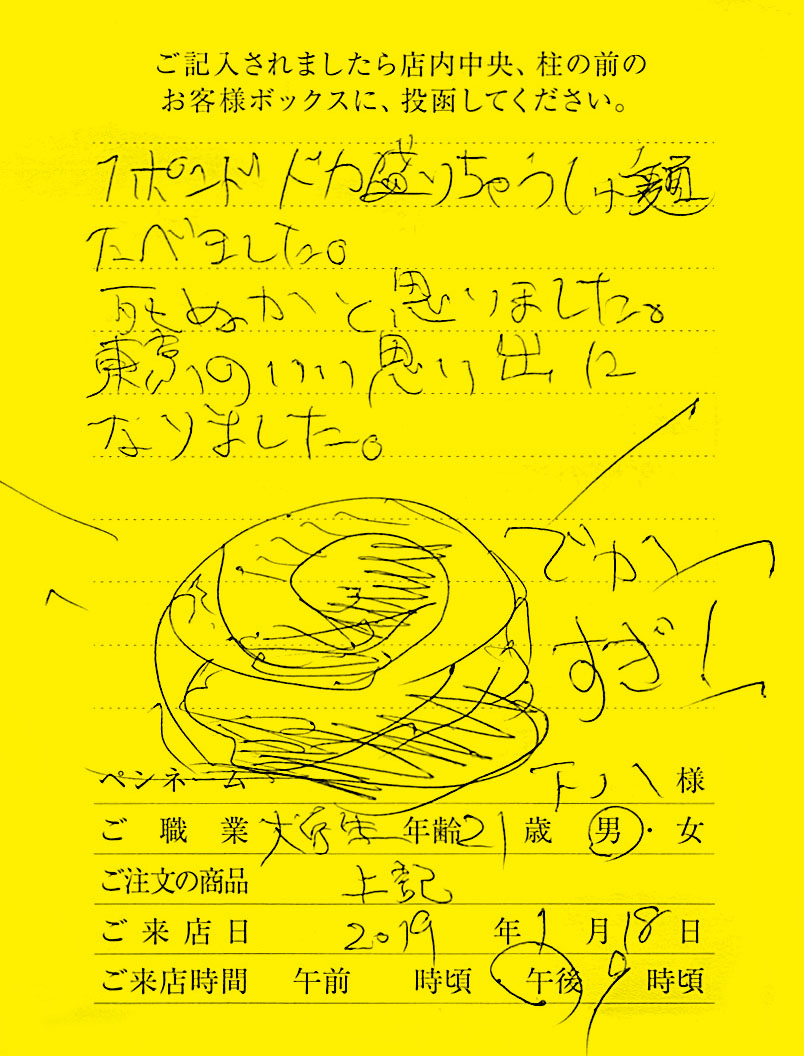 ご記入されましたら店内中央、柱の前の
お客様ボックスに、投函してください。
1ポンドドカ盛りちゃうしゅ麺
たべました。
死ぬかと思いました。
東京のいい思い出に
なりました。
でかっ
すぎ!
ペンネーム 様
ご職業 大学生 年齢 21 歳 男・女
ご注文の商品 上記
ご来店日 2019 年 1 月 18 日
ご来店時間 午前 時頃 午後 9 時頃